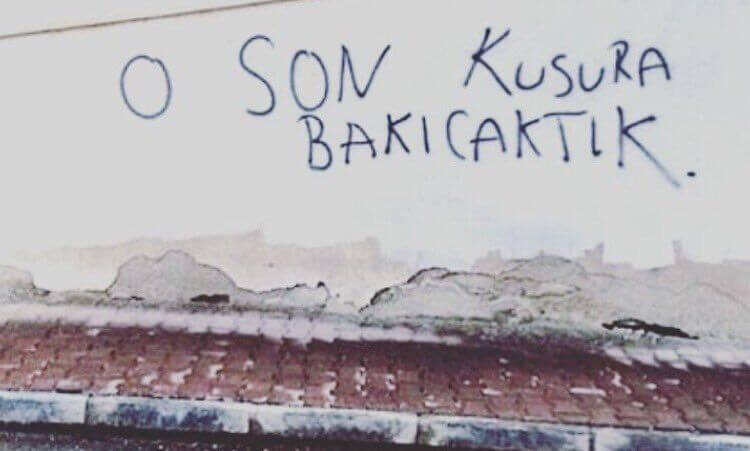 O SON KUSURA
BAKICAKTIK.